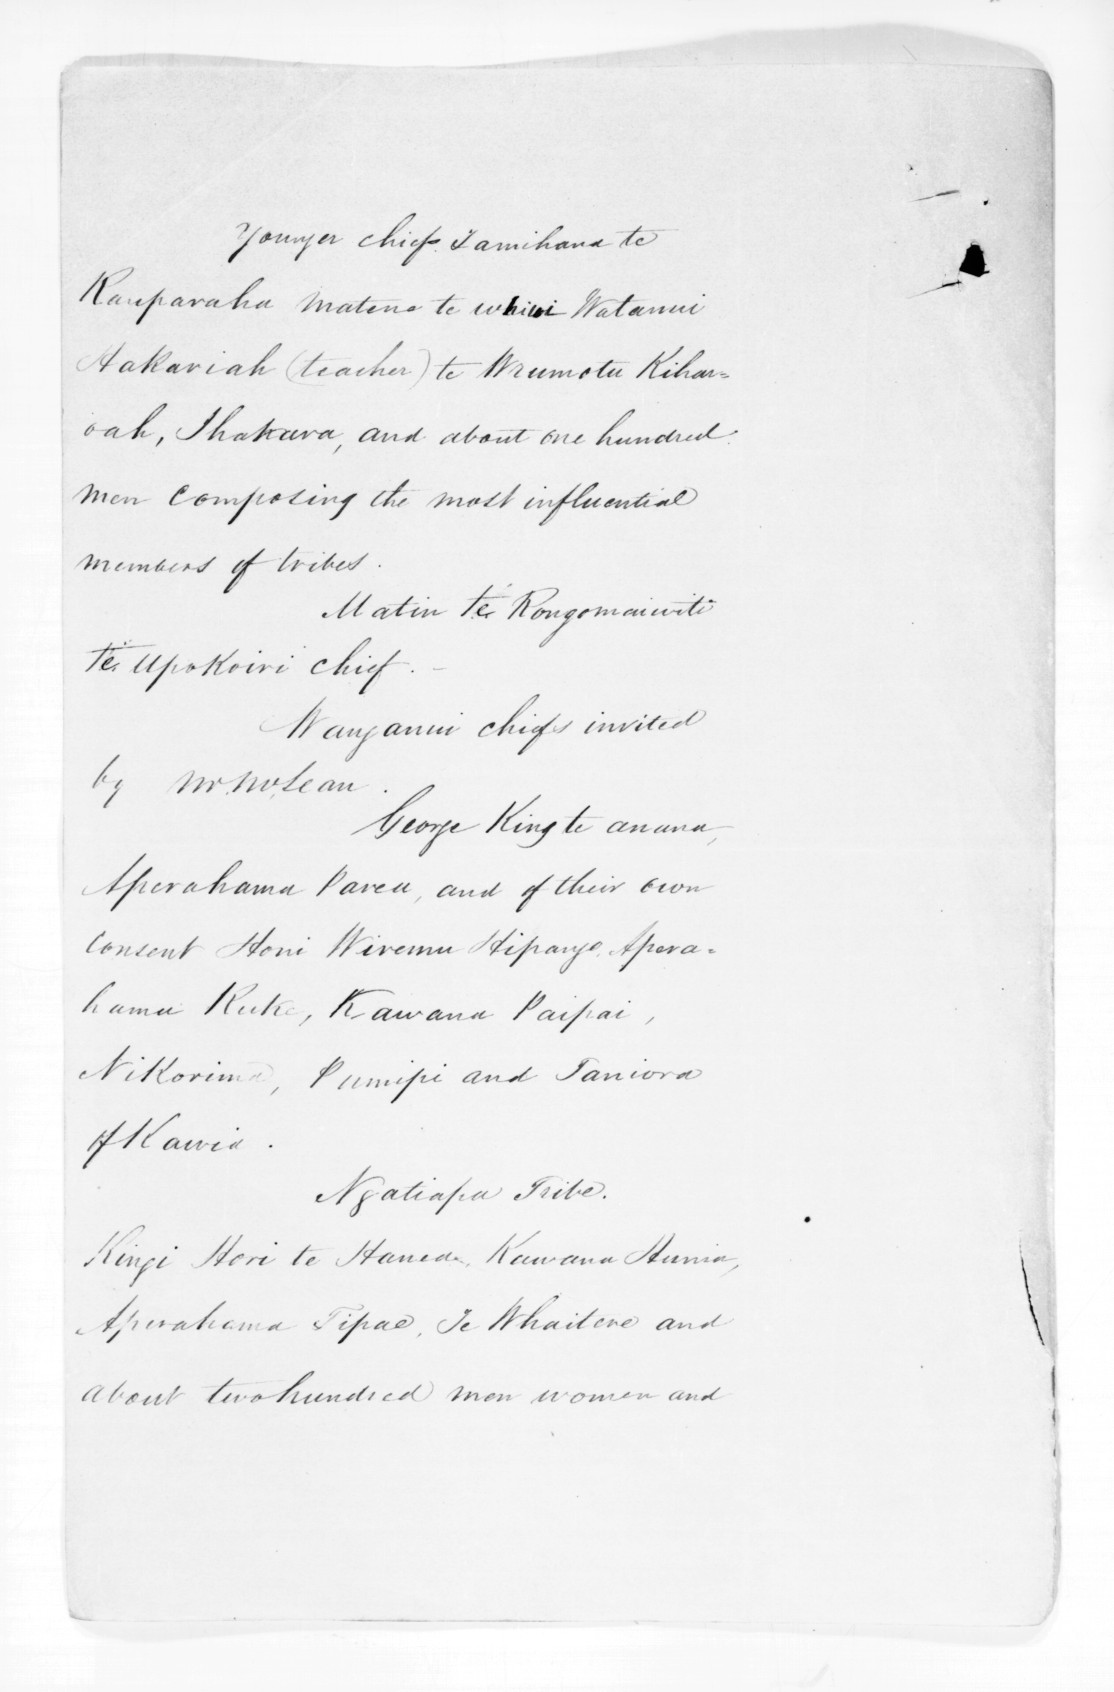 Younger chiefs Tamihana te
Rauparaha Matene te whiwi Watanui
Hakariah (teacher) te Wrumotu Kihar=
oah, Ihakara, and about one hundred
men composing the most influential
members of tribes.
Matin te Rongomaiwiti
te Upokoiri chief. -
Wanganui chiefs invited
by Mr. McLean.
George King te anana,
Aperahama Parea, and of their own
consent Honi Wiremu Hipango, Apera=
hama Ruke, Kawana Paipai,
Nikorima, Pumipi and Taniora
of Kawia.
Ngatiapa Tribe.
Kingi Hori te Hanea, Kawana Hunia,
Aperahama Tipae, Te Whaitere and
about two hundred men women and